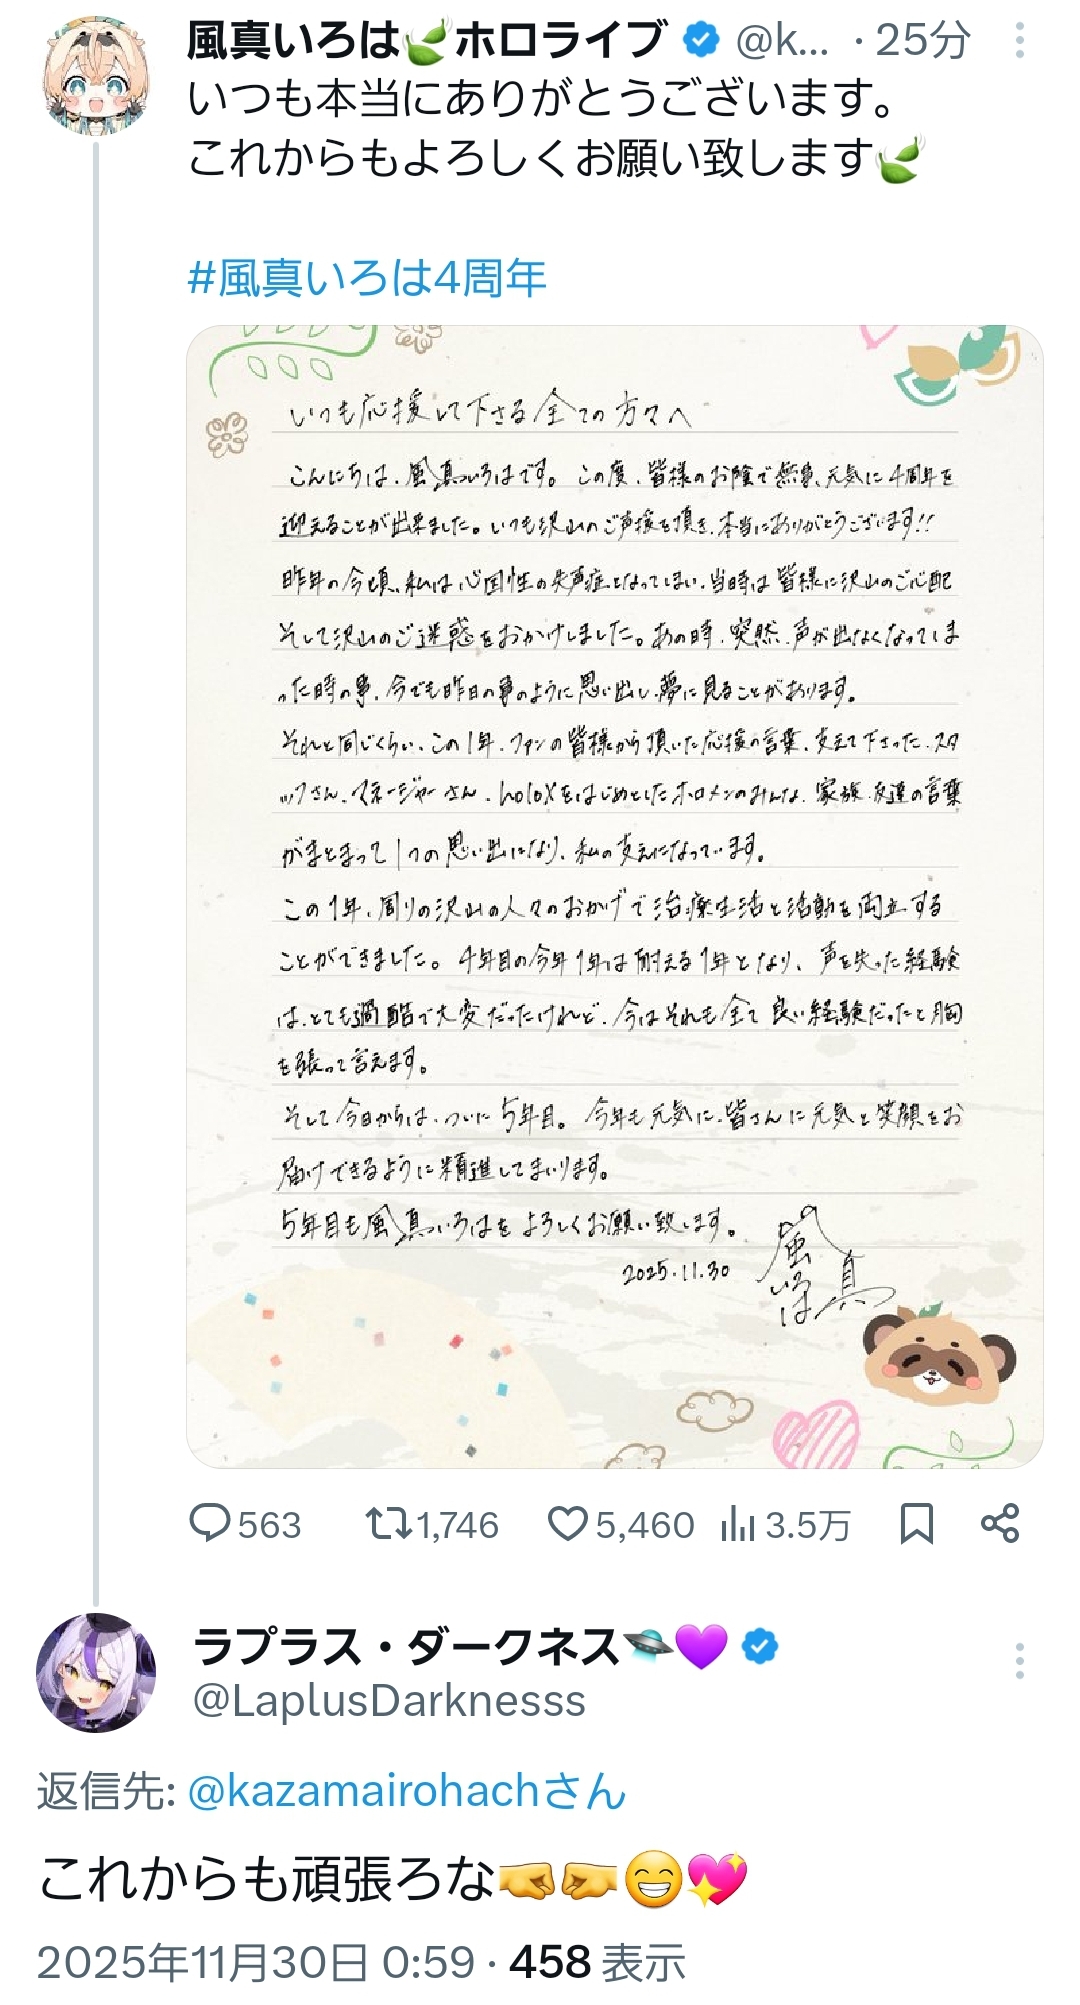 風真いろは🍃ホロライブ @k... · 25分
いつも本当にありがとうございます。
これからもよろしくお願い致します🍃
#風真いろは4周年
いつも応援して下さる全ての方々へ
こんにちは、風真いろはです。この度、皆様のお陰で無事、元気に4周年を
迎えることが出来ました。いつも沢山のご声援を頂き、本当にありがとうございます!!
昨年の今頃、私は心因性の失声症となってしまい、当時は皆様に沢山のご心配
そして沢山のご迷惑をおかけしました。あの時、突然、声が出なくなってしま
った時の事、今でも昨日の事のように思い出し、夢に見ることがあります。
それと同じくらい、この1年、ファンの皆様から頂いた応援の言葉、支えて下さった、スタ
ッフさん、マネージャーさん、holoXをはじめとしたホロメンのみんな、家族、友達の言葉
がまとまって1つの思い出になり、私の支えになっています。
この1年、周りの沢山の人々のおかげで治療生活と活動を両立する
ことができました。4年目の今年1年は耐える1年となり、声を失った経験
は、とても過酷で大変だったけれど、今はそれも全て良い経験だったと胸
を張って言えます。
そして今日からは、ついに5年目。今年も元気に、皆さんに元気と笑顔をお
届けできるように精進してまいります。
5年目も風真いろはをよろしくお願い致します。
2025.11.30
風真いろは
563 1,746 5,460 3.5万
ラプラス・ダークネス🛸💜
@LaplusDarknesss
返信先: @kazamairohachさん
これからも頑張ろな🤜🤛😁💖
2025年11月30日 0:59 · 458 表示